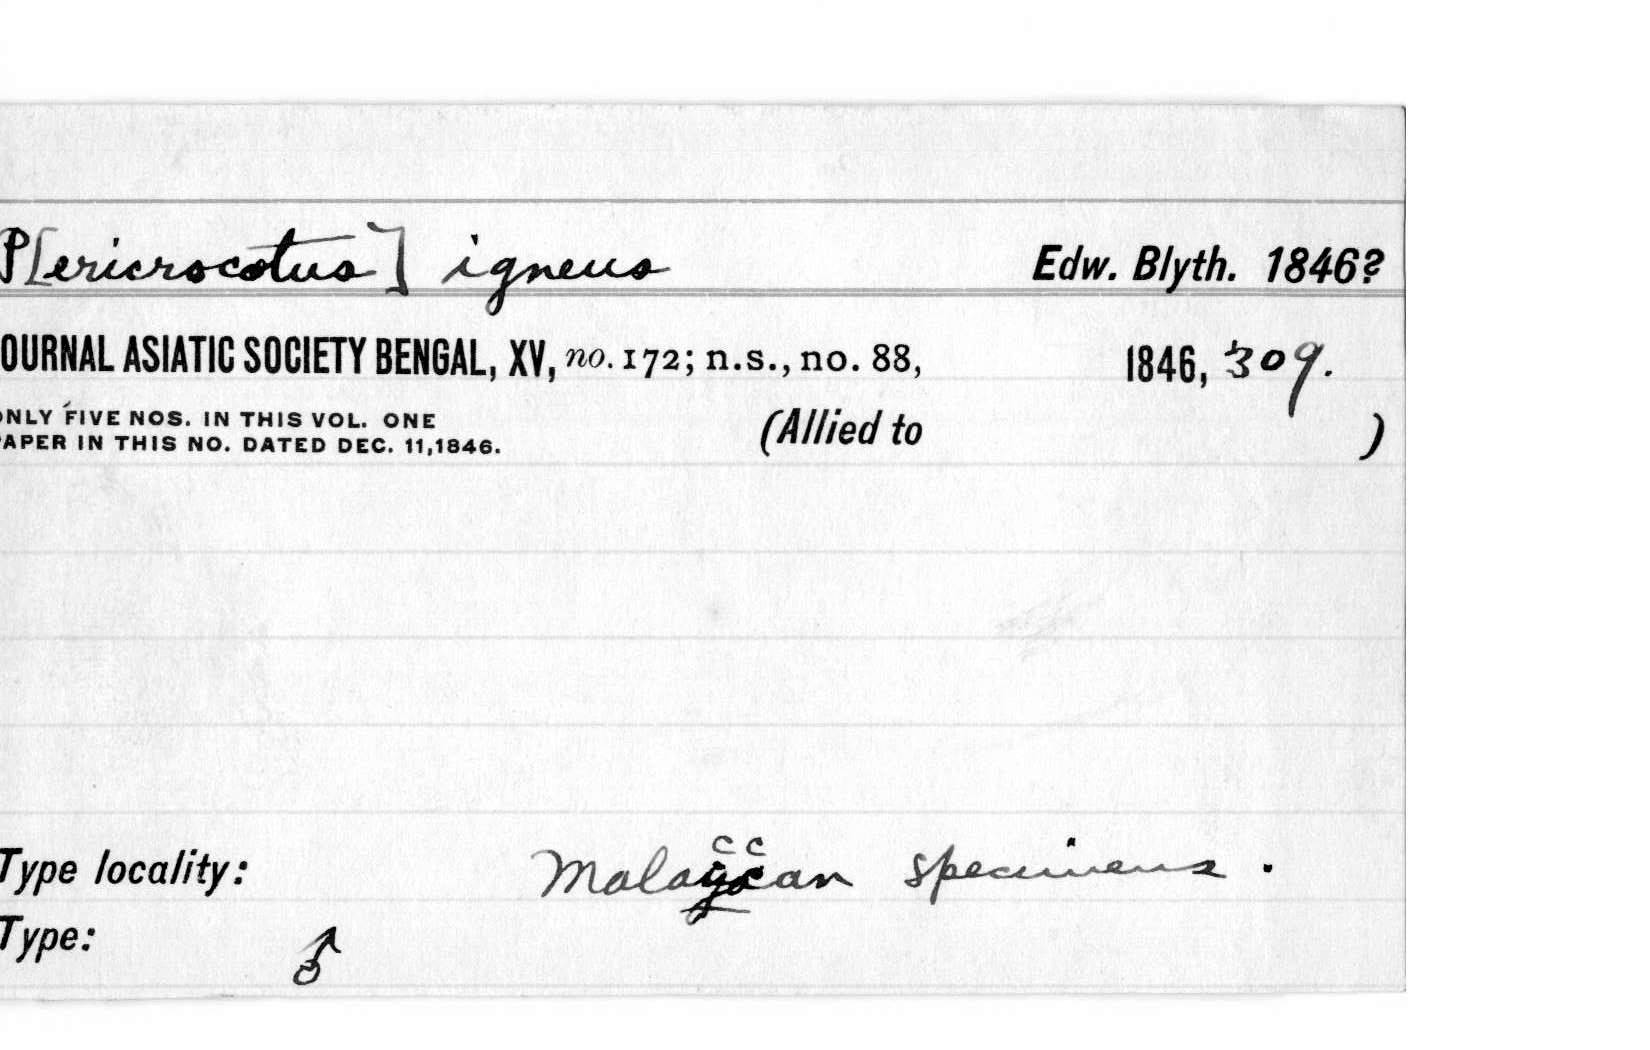 P[ericrocotus] igneus Edw. Blyth. 1846?
OURNAL ASIATIC SOCIETY BENGAL, XV, no. 172; n.s., no. 88, 1846, 309.
NLY FIVE NOS. IN THIS VOL. ONE
APER IN THIS NO. DATED DEC. 11, 1846.
(Allied to )
cc
Type locality: Malaccan specimens.
Type: ♂